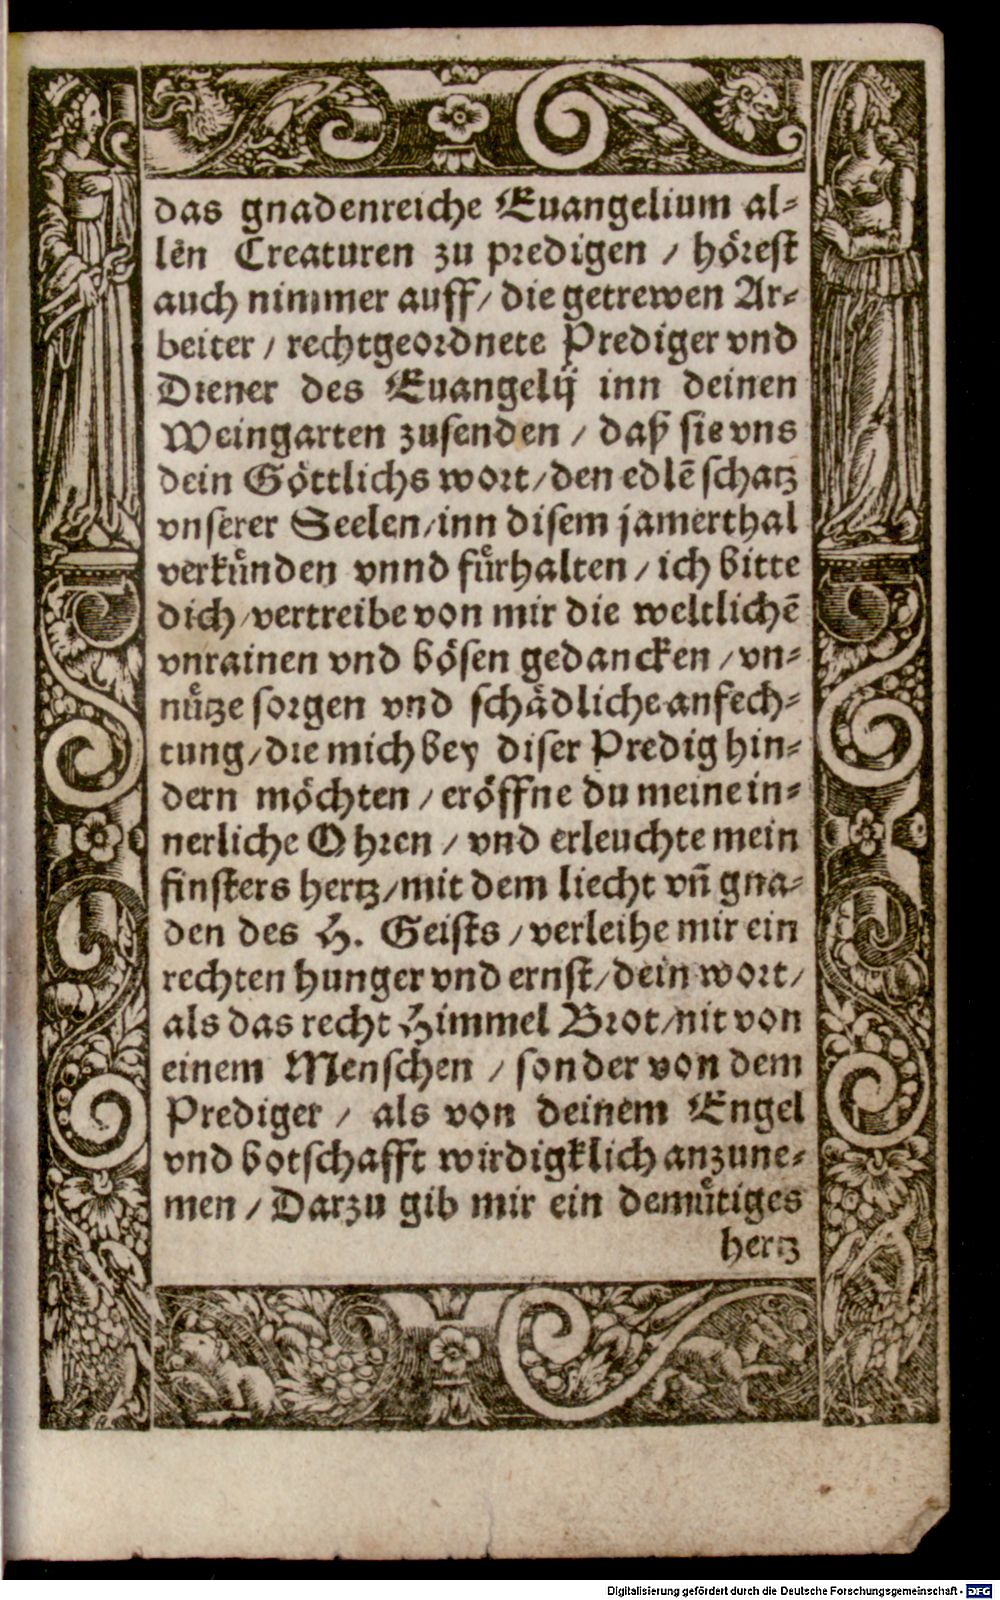 das gnadenreiche Euangelium al-
len Creaturen zu predigen / hoͤrest
auch nimmer auff / die getrewen Ar-
beiter / rechtgeordnete Prediger vnd
Diener des Euangelij inn deinen
Weingarten zusenden / daß sie vns
dein Goͤttlichs wort / den edlē schatz
vnserer Seelen / inn disem jamerthal
verkuͤnden vnnd fuͤrhalten / ich bitte
dich / vertreibe von mir die weltlichē
vnrainen vnd boͤsen gedancken / vn-
nuͤtze sorgen vnd schaͤdliche anfech-
tung / die mich bey diser Predig hin-
dern moͤchten / eroͤffne du meine in-
nerliche Ohren / vnd erleuchte mein
finsters hertz / mit dem liecht vñ gna-
den des H. Geists / verleihe mir ein
rechten hunger vnd ernst / dein wort /
als das recht Himmel Brot / nit von
einem Menschen / sonder von dem
Prediger / als von deinem Engel
vnd botschafft wirdigklich anzune-
men / Darzu gib mir ein demuͤtiges
hertz
Digitalisierung gefördert durch die Deutsche Forschungsgemeinschaft - DFG